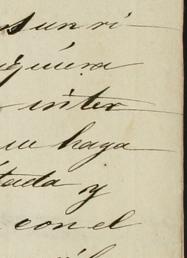 s un ri-
iquiera
inter-
ue haya
tada y
con el